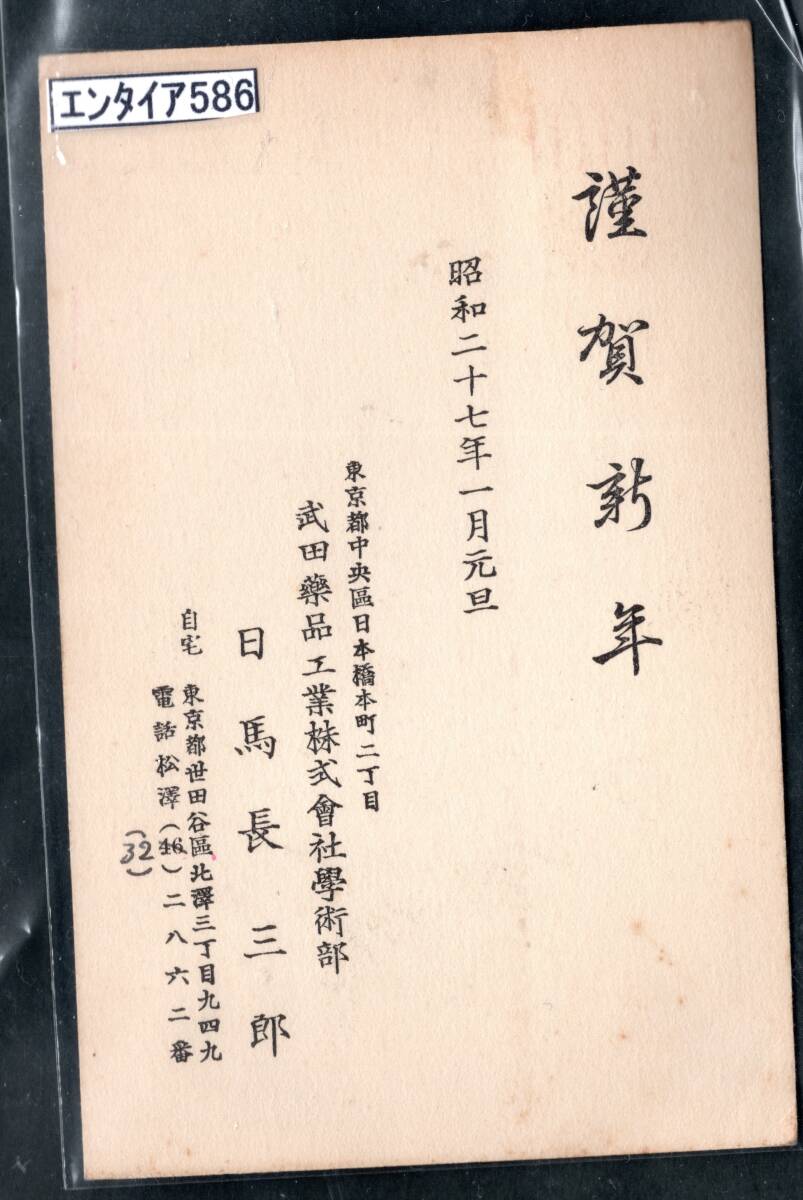 エンタイア586
謹賀新年
昭和二十七年一月元旦
東京都中央區日本橋本町二丁目
武田藥品工業株式會社學術部
日馬長三郎
自宅 東京都世田谷區北澤三丁目九四九
電話松澤(46)二八六二番
(32)